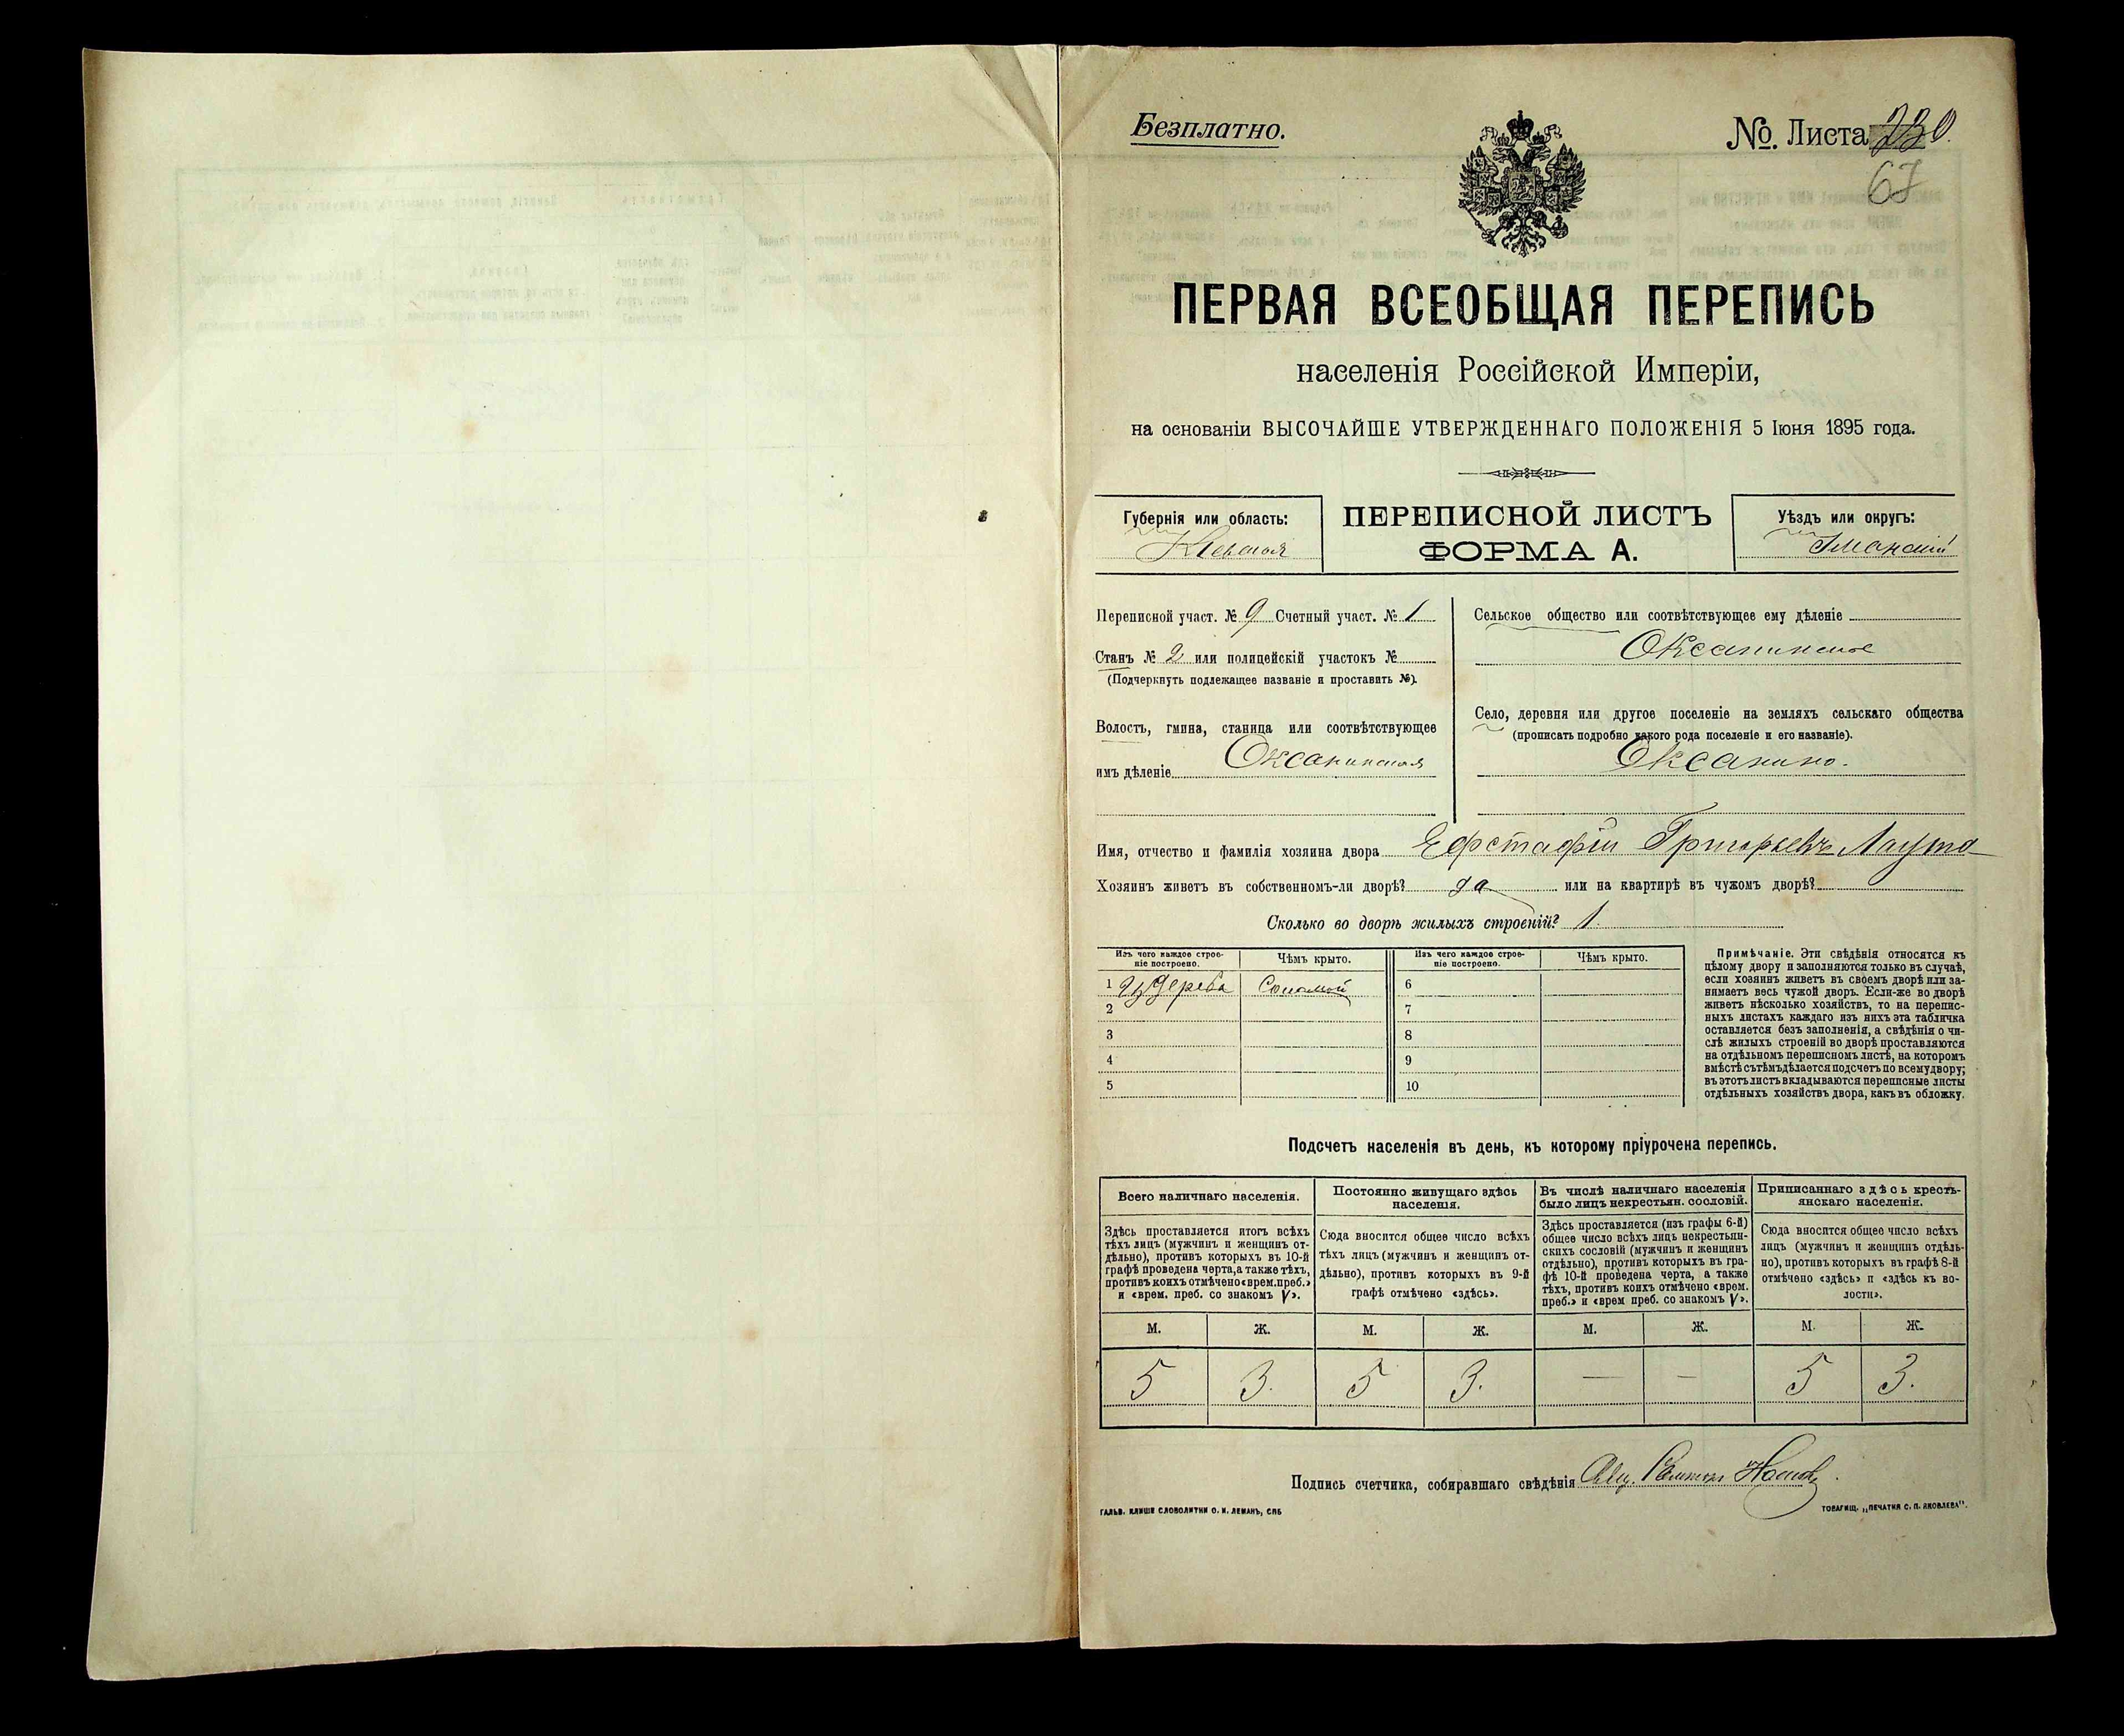 Безплатно.
№. Листа 230.
67
ПЕРВАЯ ВСЕОБЩАЯ ПЕРЕПИСЬ
населенія Россійской Имперіи,
на основаніи ВЫСОЧАЙШЕ УТВЕРЖДЕННАГО ПОЛОЖЕНІЯ 5 Іюня 1895 года.
Губернія или область:
Кіевская
ПЕРЕПИСНОЙ ЛИСТЪ
ФОРМА А.
Уѣздъ или округъ:
Уманскій
Переписной участ. № 9 Счетный участ. № 1
Станъ № 2 или полицейскій участокъ №
(Подчеркнуть подлежащее названіе и проставить №).
Волость, гмина, станица или соотвѣтствующее
имъ дѣленіе Оксанинская
Сельское общество или соотвѣтствующее ему дѣленіе
Оксанинское
Село, деревня или другое поселеніе на земляхъ сельскаго общества
(прописать подробно какого рода поселеніе и его названіе).
Оксанино.
Имя, отчество и фамилія хозяина двора Ефстафій Григорьевъ Лаута
Хозяинъ живетъ въ собственномъ-ли дворѣ? да или на квартирѣ въ чужомъ дворѣ?
Сколько во дворѣ жилыхъ строеній? 1.
Изъ чего каждое строе-
ніе построено.
Чѣмъ крыто.
Изъ чего каждое строе-
ніе построено.
Чѣмъ крыто.
1 Изъ дерева Соломой 6
2 7
3 8
4 9
5 10
Примѣчаніе. Эти свѣдѣнія относятся къ
цѣлому двору и заполняются только въ случаѣ,
если хозяинъ живетъ въ своемъ дворѣ или за-
нимаетъ весь чужой дворъ. Если-же во дворѣ
живетъ нѣсколько хозяйствъ, то на перепис-
ныхъ листахъ каждаго изъ нихъ эта табличка
оставляется безъ заполненія, а свѣдѣнія о чи-
слѣ жилыхъ строеній во дворѣ проставляются
на отдѣльномъ переписномъ листѣ, на которомъ
вмѣстѣ съ тѣмъ дѣлается подсчетъ по всему двору;
въ этотъ листъ вкладываются переписные листы
отдѣльныхъ хозяйствъ двора, какъ въ обложку.
Подсчетъ населенія въ день, къ которому пріурочена перепись.
Всего наличнаго населенія.
Здѣсь проставляется итогъ всѣхъ
тѣхъ лицъ (мужчинъ и женщинъ от-
дѣльно), противъ которыхъ въ 10-й
графѣ проведена черта, а также тѣхъ,
противъ коихъ отмѣчено «врем. преб.»
и «врем. преб. со знакомъ V».
Постоянно живущаго здѣсь
населенія.
Сюда вносится общее число всѣхъ
тѣхъ лицъ (мужчинъ и женщинъ от-
дѣльно), противъ которыхъ въ 9-й
графѣ отмѣчено «здѣсь».
Въ числѣ наличнаго населенія
было лицъ некрестьян. сословій.
Здѣсь проставляется (изъ графы 6-й)
общее число всѣхъ лицъ некрестьян-
скихъ сословій (мужчинъ и женщинъ
отдѣльно), противъ которыхъ въ гра-
фѣ 10-й проведена черта, а также
тѣхъ, противъ коихъ отмѣчено «врем.
преб.» и «врем преб. со знакомъ V».
Приписаннаго здѣсь кресть-
янскаго населенія.
Сюда вносится общее число всѣхъ
лицъ (мужчинъ и женщинъ отдѣль-
но), противъ которыхъ въ графѣ 8-й
отмѣчено «здѣсь» и «здѣсь къ во-
лости».
М. Ж. М. Ж. М. Ж. М. Ж.
5 3. 5 3. — — 5 3.
Подпись счетчика, собиравшаго свѣдѣнія
ГАЛЬВ. КЛИШЕ СЛОВОЛИТНИ О. И. ЛЕМАНЪ, СПБ
ТОВАРИЩ. „ПЕЧАТНЯ С. П. ЯКОВЛЕВА".